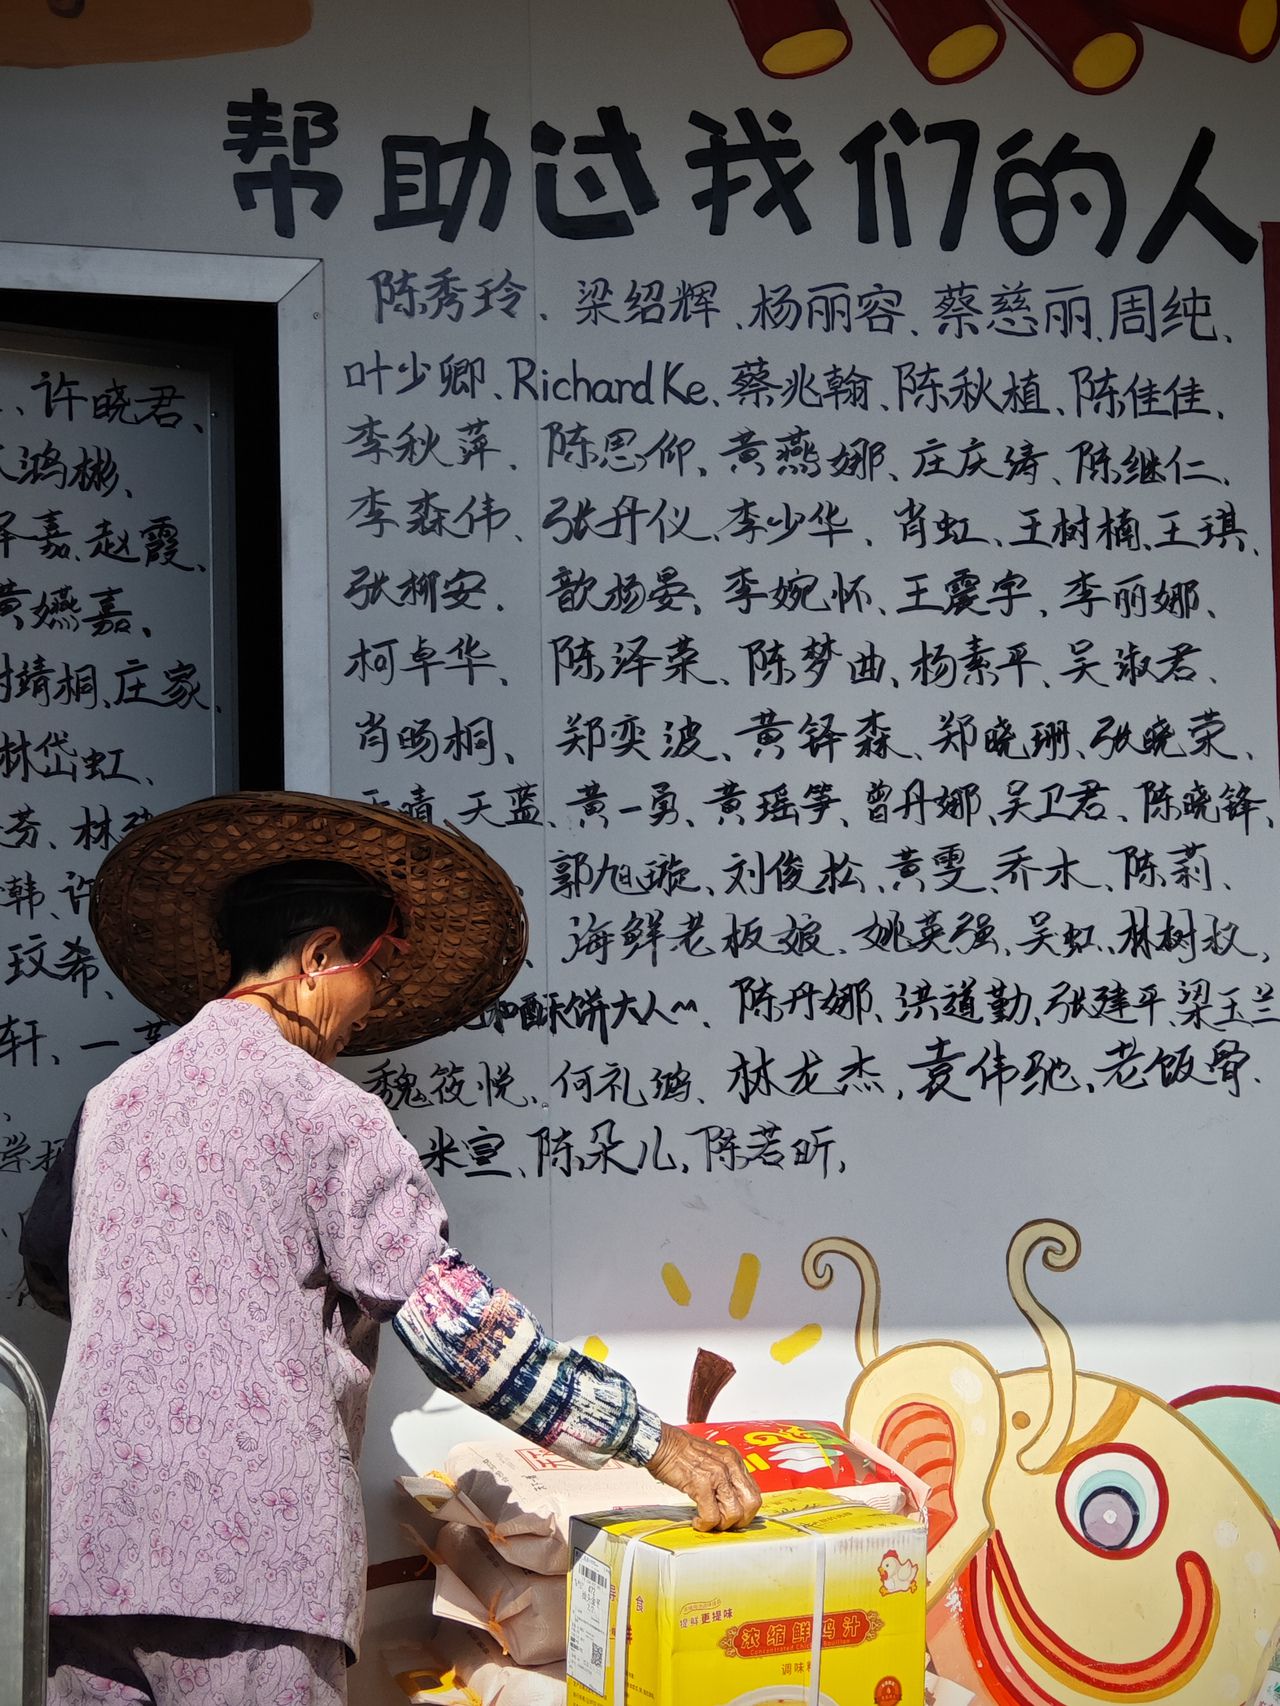 帮助过我们的人
陈秀玲、梁绍辉、杨丽容、蔡慈丽、周纯、
叶少卿、Richard Ke、蔡兆翰、陈秋植、陈佳佳、
李秋萍、陈思仰、黄燕娜、庄庆涛、陈继仁、
李森伟、张丹仪、李少华、肖虹、王树楠、王琪、
张柳安、歆杨晏、李婉怀、王震宇、李丽娜、
柯卓华、陈泽荣、陈梦曲、杨素平、吴淑君、
肖旸桐、郑奕波、黄铎森、郑晓珊、张晓荣、
晴、天蓝、黄一勇、黄瑶笋、曾丹娜、吴卫君、陈晓锋、
郭旭璇、刘俊松、黄雯、乔木、陈莉、
海鲜老板娘、姚英强、吴虹、林树
和酥饼大人~、陈丹娜、洪道勤、张建平、梁玉兰
魏筱悦、何礼鸿、林龙杰、袁伟驰、老饭骨、
米宣、陈朵儿、陈若昕,
、许晓君、
鸿彬、
嘉、赵霞、
黄嬿嘉、
靖桐、庄家
林岱虹、
芬、林
韩、许
玟希、
轩、一
学
提鲜更提味
浓缩鲜鸡汁
Concentrated Chicken Bouillon
调味料